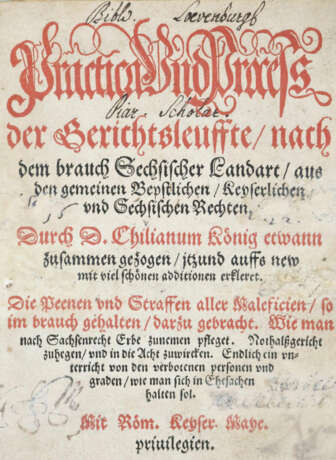 Bibl. Loevenburgh
Practica Vnd Process
Piar. Scholar
der Gerichtsleuffte / nach
dem brauch Sechsischer Landart / aus
den gemeinen Bepstlichen / Keyserlichen
vnd Sechsischen Rechten
Durch D. Chilianum König etwann
zusammen gezogen / jtzund auffs new
mit viel schönen additionen erkleret.
Die Peenen vnd Straffen aller Maleficien / so
im brauch gehalten / darzu gebracht. Wie man
nach Sachsenrecht Erbe zunemen pfleget. Nothalßgericht
zuhegen / vnd in die Acht zuwircken. Endlich ein vn-
terricht von den verbotenen personen vnd
graden / wie man sich in Ehesachen
halten sol.
Mit Röm. Keyser. Maye.
priuilegien.